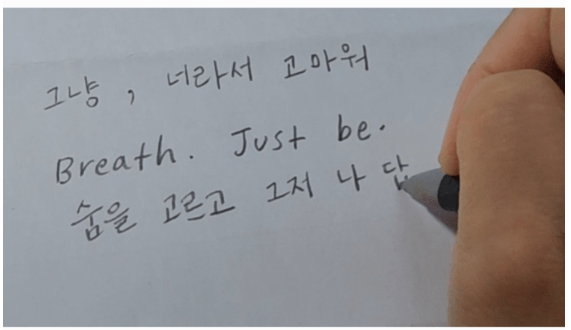 그냥, 너라서 고마워
Breath. Just be.
숨을 고르고 그저 나 답